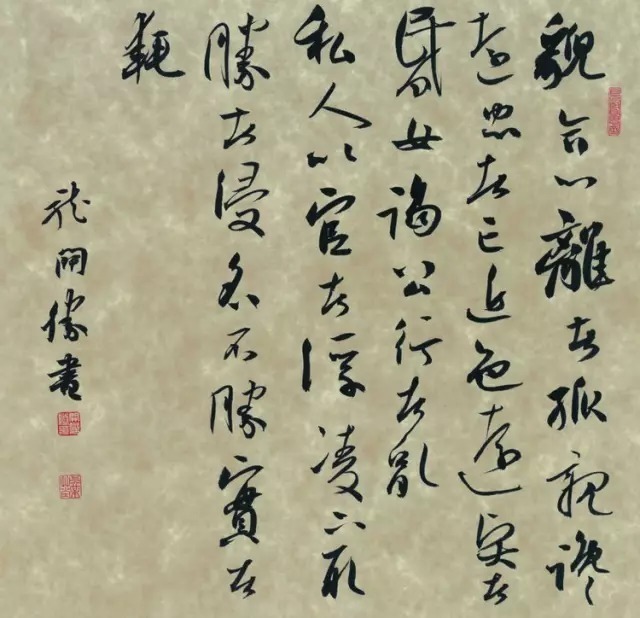 貌合心離者孤親讒
遠忠者亡近色遠賢者
昬女謁公行者亂
私人以官者浮凌下取
勝者侵名不勝實者
耗
龍開勝書